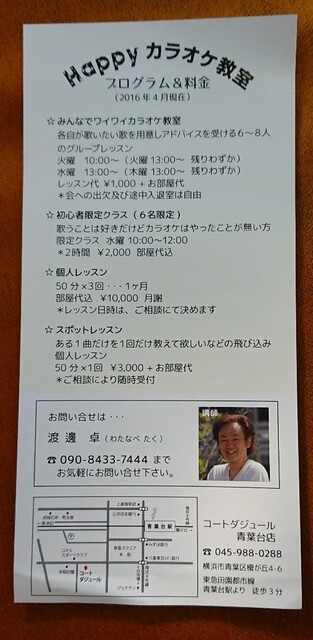 Happy カラオケ教室
プログラム＆料金
（2016年4月現在）
☆みんなでワイワイカラオケ教室
各自が歌いたい歌を用意しアドバイスを受ける6～8人
のグループレッスン
火曜 10:00～（火曜 13:00～ 残りわずか）
水曜 13:00～（木曜 13:00～ 残りわずか）
レッスン代 ¥1,000 +お部屋代
＊会への出欠及び途中入退室は自由
☆初心者限定クラス（６名限定）
歌うことは好きだけどカラオケはやったことが無い方
限定クラス 水曜 10:00～12:00
＊2時間 ¥2,000 部屋代込
☆個人レッスン
50分×3回・・・1ヶ月
部屋代込 ¥10,000 月謝
＊レッスン日時は、ご相談にて決めます
☆スポットレッスン
ある1曲だけを1回だけ教えて欲しいなどの飛び込み
個人レッスン
50分×1回 ¥3,000 +お部屋代
＊ご相談により随時受付
お問い合せは・・・
渡邊 卓（わたなべ たく）
☎ 090-8433-7444 まで
お気軽にお問い合せ下さい。
講師
青葉台駅
コート
ダジュール
コートダジュール
青葉台店
☎ 045-988-0288
横浜市青葉区榎が丘4-6
東急田園都市線
青葉台駅より 徒歩3分